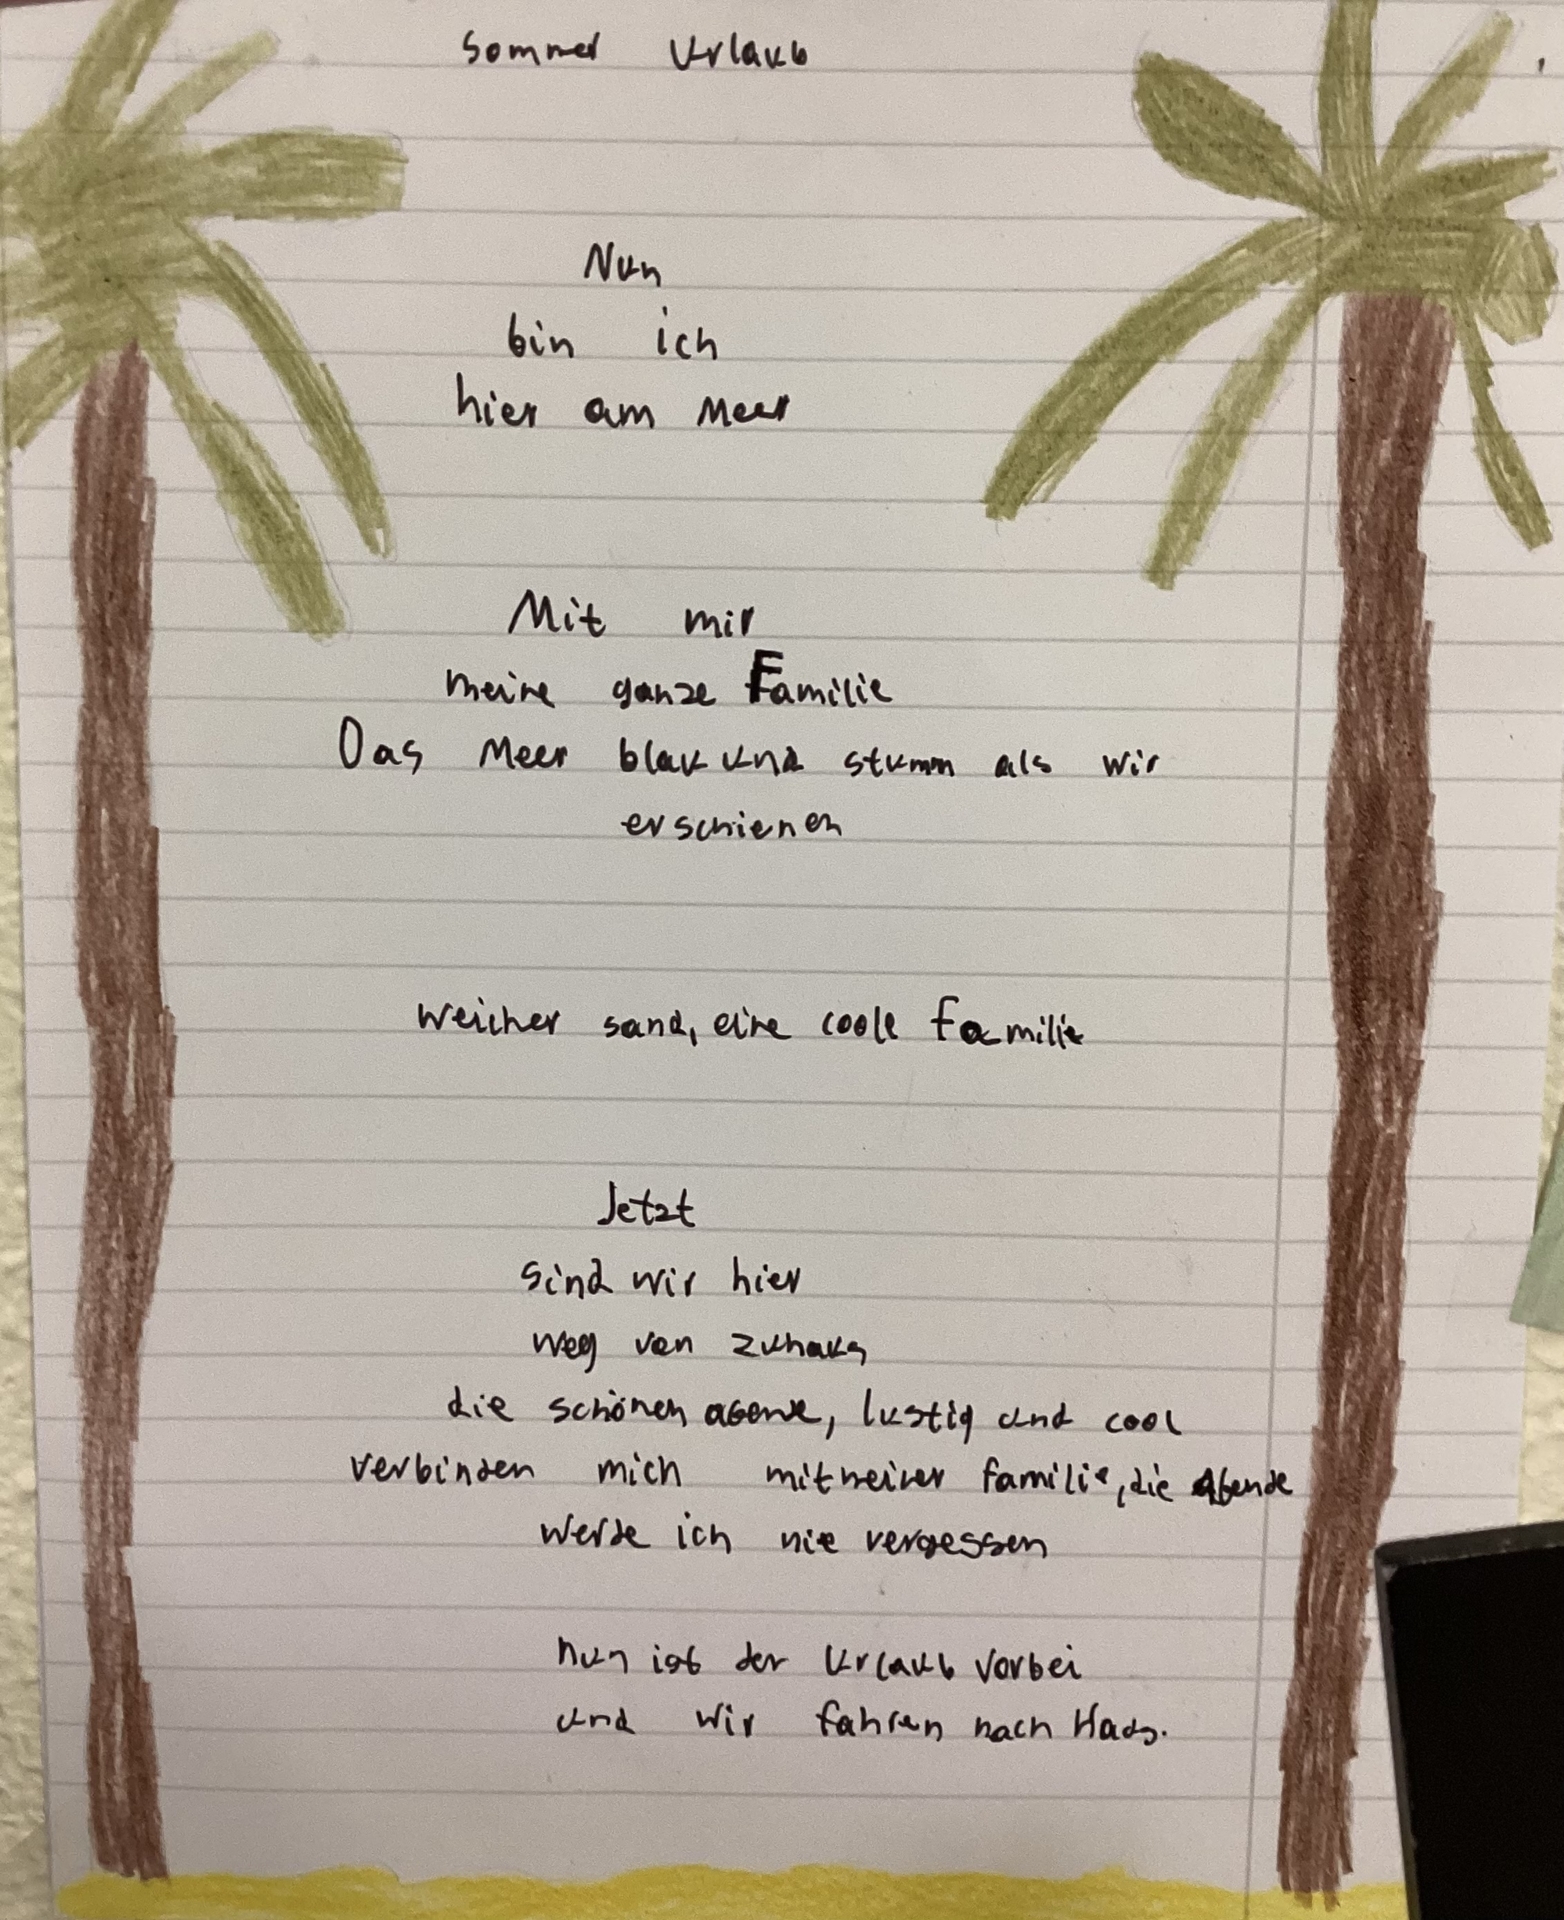 Sommer Urlaub
Nun
bin ich
hier am Meer
Mit mir
meine ganze Familie
Das Meer blau und stumm als wir
erschienen
Weicher sand, eine coole familie
Jetzt
sind wir hier
weg von zuhaus
die schönen abende, lustig und cool
verbinden mich mit meiner familie, die Abende
werde ich nie vergessen
nun ist der Urlaub vorbei
und wir fahren nach Haus.